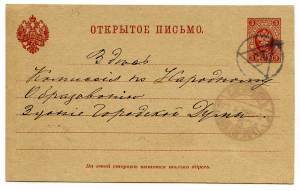 ОТКРЫТОЕ ПИСЬМО.
Здѣсь
Коммиссія по Народному
Образованію
Зданіе Городской Думы
На этой сторонѣ пишется только адресъ.